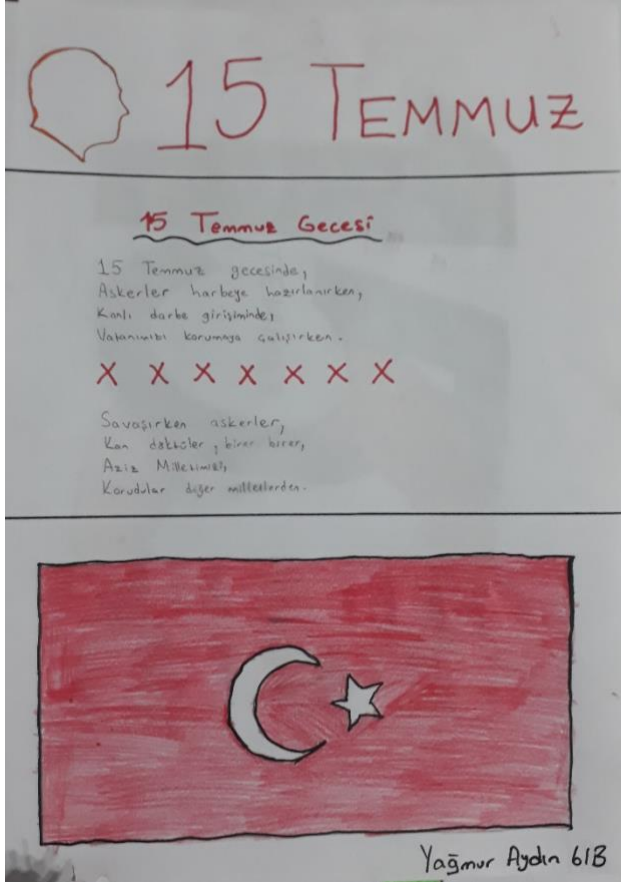 15 TEMMUZ
15 Temmuz Gecesi
15 Temmuz gecesinde,
Askerler harbeye hazırlanırken,
Kanlı darbe girişiminde,
Vatanımızı korumaya çalışırken.
X X X X X X X
Savaşırken askerler,
Kan döktüler, birer birer,
Aziz Milletimizi,
Korudular diğer milletlerden.
Yağmur Aydın 6/B